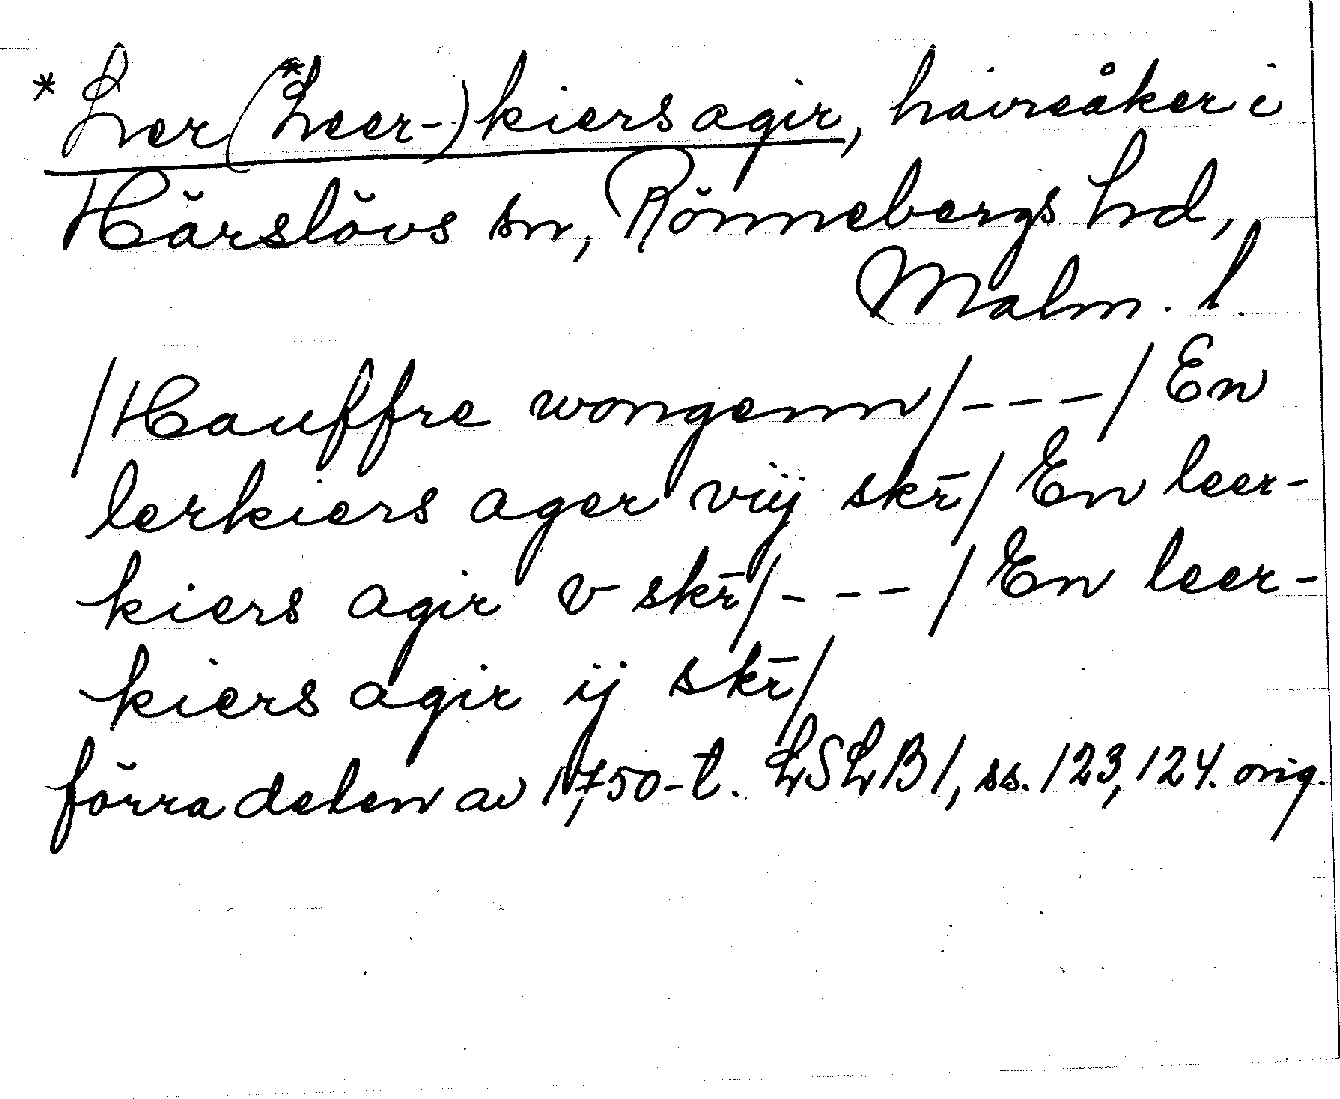 *Ler(*Leer-)kiersagir, havreåker i
Härslövs sn, Rönnebergs hd,
Malm. l.
/Hauffre wongenn/---/En
lerkiers ager viij skr̄/En leer-
kiers agir v skr̄/---/En leer-
kiers agir ij skr̄/
förra delen av 1750-t. LSLB1, ss. 123, 124. orig.